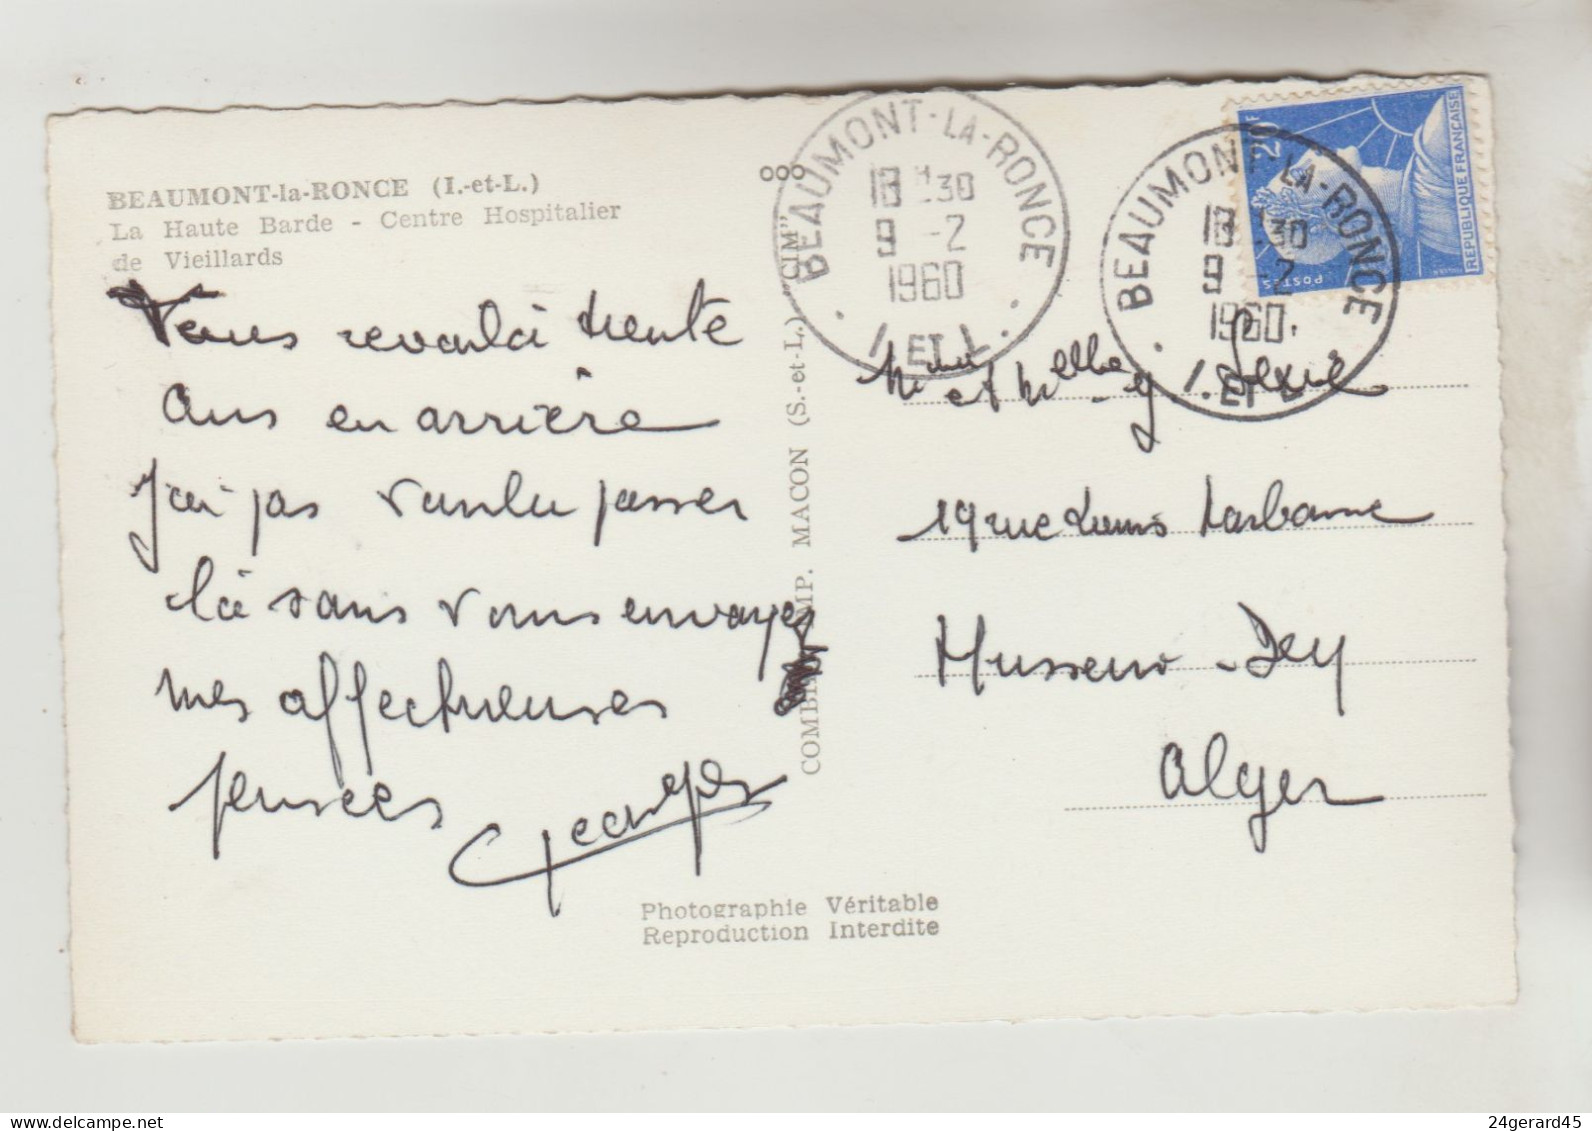 BEAUMONT-la-RONCE (I.-et-L.)
La Haute Barde - Centre Hospitalier
de Vieillards
Vous revoilà trente
ans en arrière
J'ai pas voulu passer
là sans vous envoyer
mes affectueuses
pensées Georges
COMBIER IMP. MACON (S.-et-L.) "CIM"
BEAUMONT-LA-RONCE
18 H 30
9 -2
1960
I. ET L.
BEAUMONT-LA-RONCE
18 30
9 -2
1960
I. ET L.
20F
POSTES
REPUBLIQUE FRANÇAISE
19 rue Louis Narbonne
Hussein-Dey
Alger
Photographie Véritable
Reproduction Interdite
24gerard45
www.delcampe.net